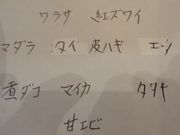 ワラサ 紅ズワイ
マダラ タイ 皮ハギ エソ
煮ダコ マイカ タタキ
甘エビ